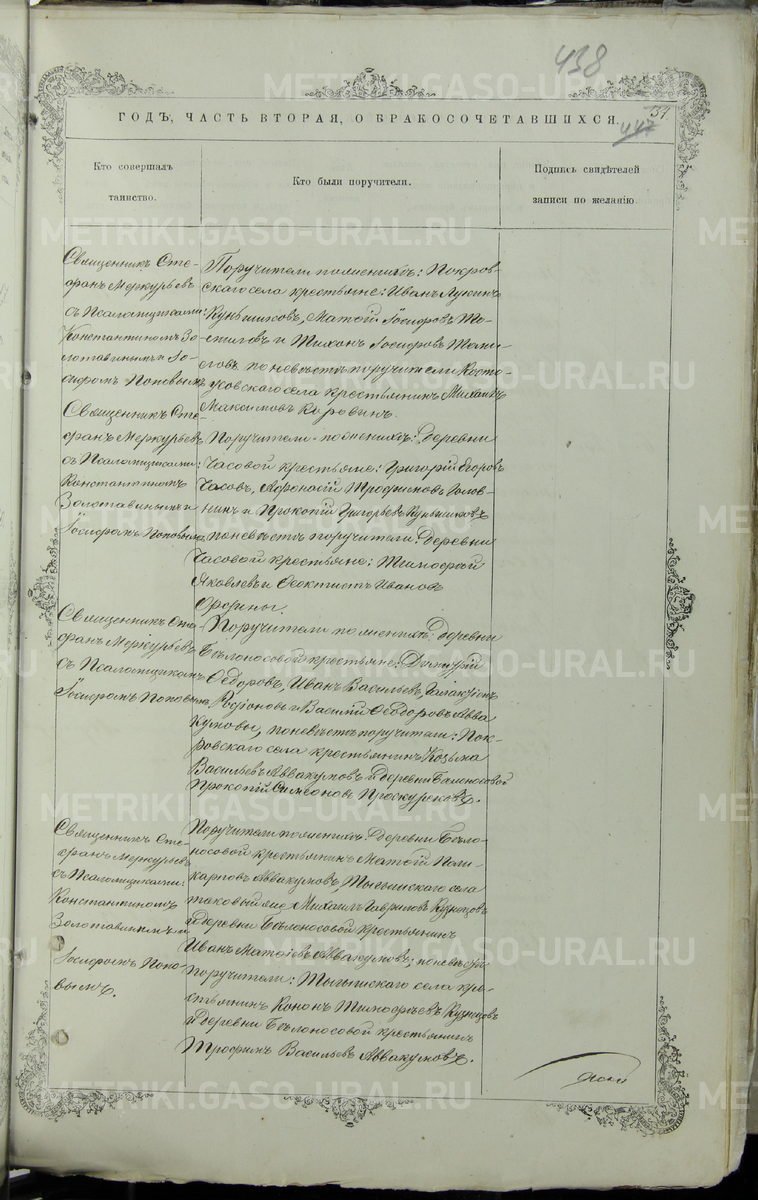 438
ГОДЪ, ЧАСТЬ ВТОРАЯ, О БРАКОСОЧЕТАВШИХСЯ.
131
447
Кто совершалъ
таинство.
Кто были поручители.
Подпись свидѣтелей
записи по желанію.
Священникъ Сте-
фанъ Меркурьевъ
съ Псаломщиками:
Константиномъ Зо-
лотавинымъ и Іо-
сифомъ Поповымъ
Поручители по женихѣ: Покров-
скаго села крестьяне: Иванъ Лукинъ
Куньщиковъ, Матѳій Іосифовъ
и Тихонъ Іосифовъ
по невѣстѣ поручители
села крестьянинъ Михаилъ
Максимовъ Коровинъ.
Священникъ Сте-
фанъ Меркурьевъ
съ Псаломщиками:
Константиномъ
Золотавинымъ и
Іосифомъ Поповымъ
Поручители по женихѣ: Деревни
Часовой крестьяне: Григорій Егоровъ
Часовъ, Афонасій Трофимовъ Голов-
нинъ и Прокопій Григорьевъ Куньщиковъ
по невѣстѣ поручители: Деревни
Часовой крестьяне: Тимофей
Яковлевъ и Ѳеоктистъ Ивановъ
Священникъ Сте-
фанъ Меркурьевъ
съ Псаломщикомъ
Іосифомъ Поповымъ
Поручители по женихѣ: Деревни
Бѣлоносовой крестьяне:
Ѳедоровъ, Иванъ Васильевъ, Галактіонъ
Родіоновъ и Василій Ѳеодоровъ Авва
кумовы, по невѣстѣ поручители: Пок-
ровскаго села крестьянинъ Козьма
Васильевъ Аввакумовъ и деревни Бѣлоносовой
Прокопій Симеоновъ Проскуряковъ.
Священникъ Сте-
фанъ Меркурьевъ
съ Псаломщиками:
Константиномъ
Золотавинымъ и
Іосифомъ Попо-
вымъ.
Поручители по женихѣ: Деревни Бѣло-
носовой крестьянинъ Матѳій Поли-
карповъ Аввакумовъ, Тыгишскаго села
таковый же Михаилъ Гавриловъ Кузнецовъ
и деревни Бѣлоносовой крестьянинъ
Иванъ Матѳіевъ Аввакумовъ; по невѣстѣ
поручители: Тыгишскаго села кре-
стьянинъ Кононъ Тимофѣевъ Кузнецовъ
и деревни Бѣлоносовой крестьянинъ
Трофимъ Васильевъ Аввакумовъ.
METRIKI.GASO-URAL.RU